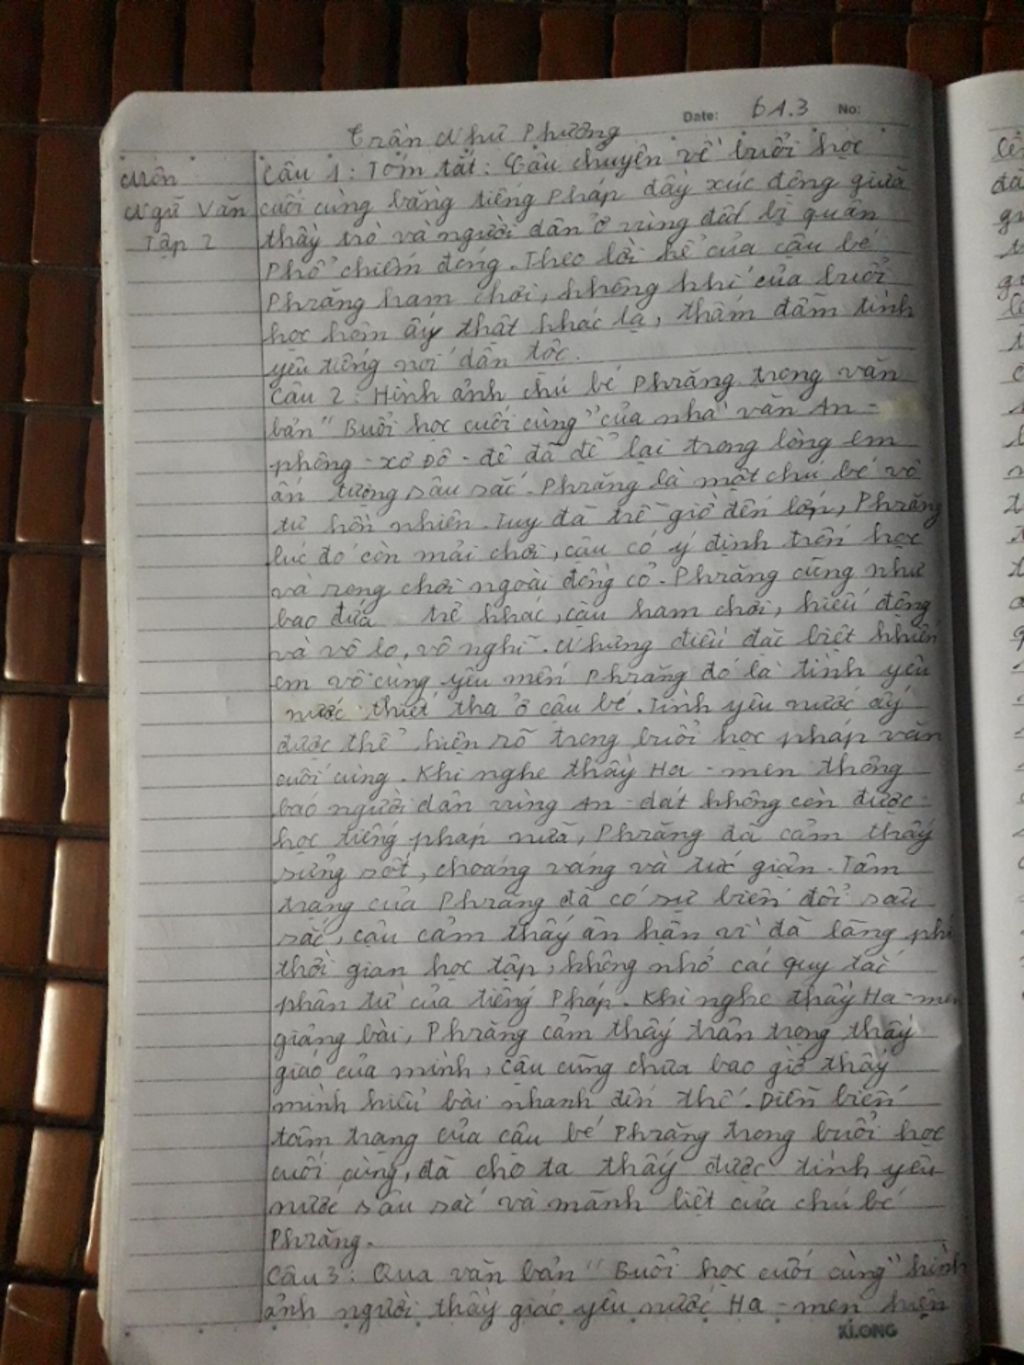 Date: 6A.3 No:
Trần Như Phương
Môn
Ngữ Văn
Tập 2
Câu 1: Tóm tắt: Câu chuyện về buổi học
cuối cùng bằng tiếng Pháp đầy xúc động giữa
thầy trò và người dân ở vùng đất bị quân
Phổ chiếm đóng. Theo lời kể của cậu bé
Phrăng ham chơi, không khí của buổi
học hôm ấy thật khác lạ, thấm đẫm tình
yêu tiếng nói dân tộc.
Câu 2: Hình ảnh chú bé Phrăng trong văn
bản "Buổi học cuối cùng" của nhà văn An-
phông-xơ Đô-đê đã để lại trong lòng em
ấn tượng sâu sắc. Phrăng là một chú bé vô
tư hồn nhiên. Tuy đã trễ giờ đến lớp, Phrăng
lúc đó còn mải chơi, cậu có ý định trốn học
và rong chơi ngoài đồng cỏ. Phrăng cũng như
bao đứa trẻ khác, cậu ham chơi, hiếu động
và vô lo, vô nghĩ. Nhưng điều đặc biệt khiến
em vô cùng yêu mến Phrăng đó là tình yêu
nước thiết tha ở cậu bé. Tình yêu nước ấy
được thể hiện rõ trong buổi học pháp văn
cuối cùng. Khi nghe thầy Ha-men thông
báo người dân vùng An-dát không còn được
học tiếng pháp nữa, Phrăng đã cảm thấy
sửng sốt, choáng váng và tức giận. Tâm
trạng của Phrăng đã có sự biến đổi sâu
sắc, cậu cảm thấy ân hận vì đã lãng phí
thời gian học tập, không nhớ các quy tắc
phân từ của tiếng Pháp. Khi nghe thầy Ha-men
giảng bài, Phrăng cảm thấy trân trọng thầy
giáo của mình, cậu cũng chưa bao giờ thấy
mình hiểu bài nhanh đến thế. Diễn biến
tâm trạng của cậu bé Phrăng trong buổi học
cuối cùng, đã cho ta thấy được tình yêu
nước sâu sắc và mãnh liệt của chú bé
Phrăng.
Câu 3: Qua văn bản "Buổi học cuối cùng" hình
ảnh người thầy giáo yêu nước Ha-men hiện
KLONG